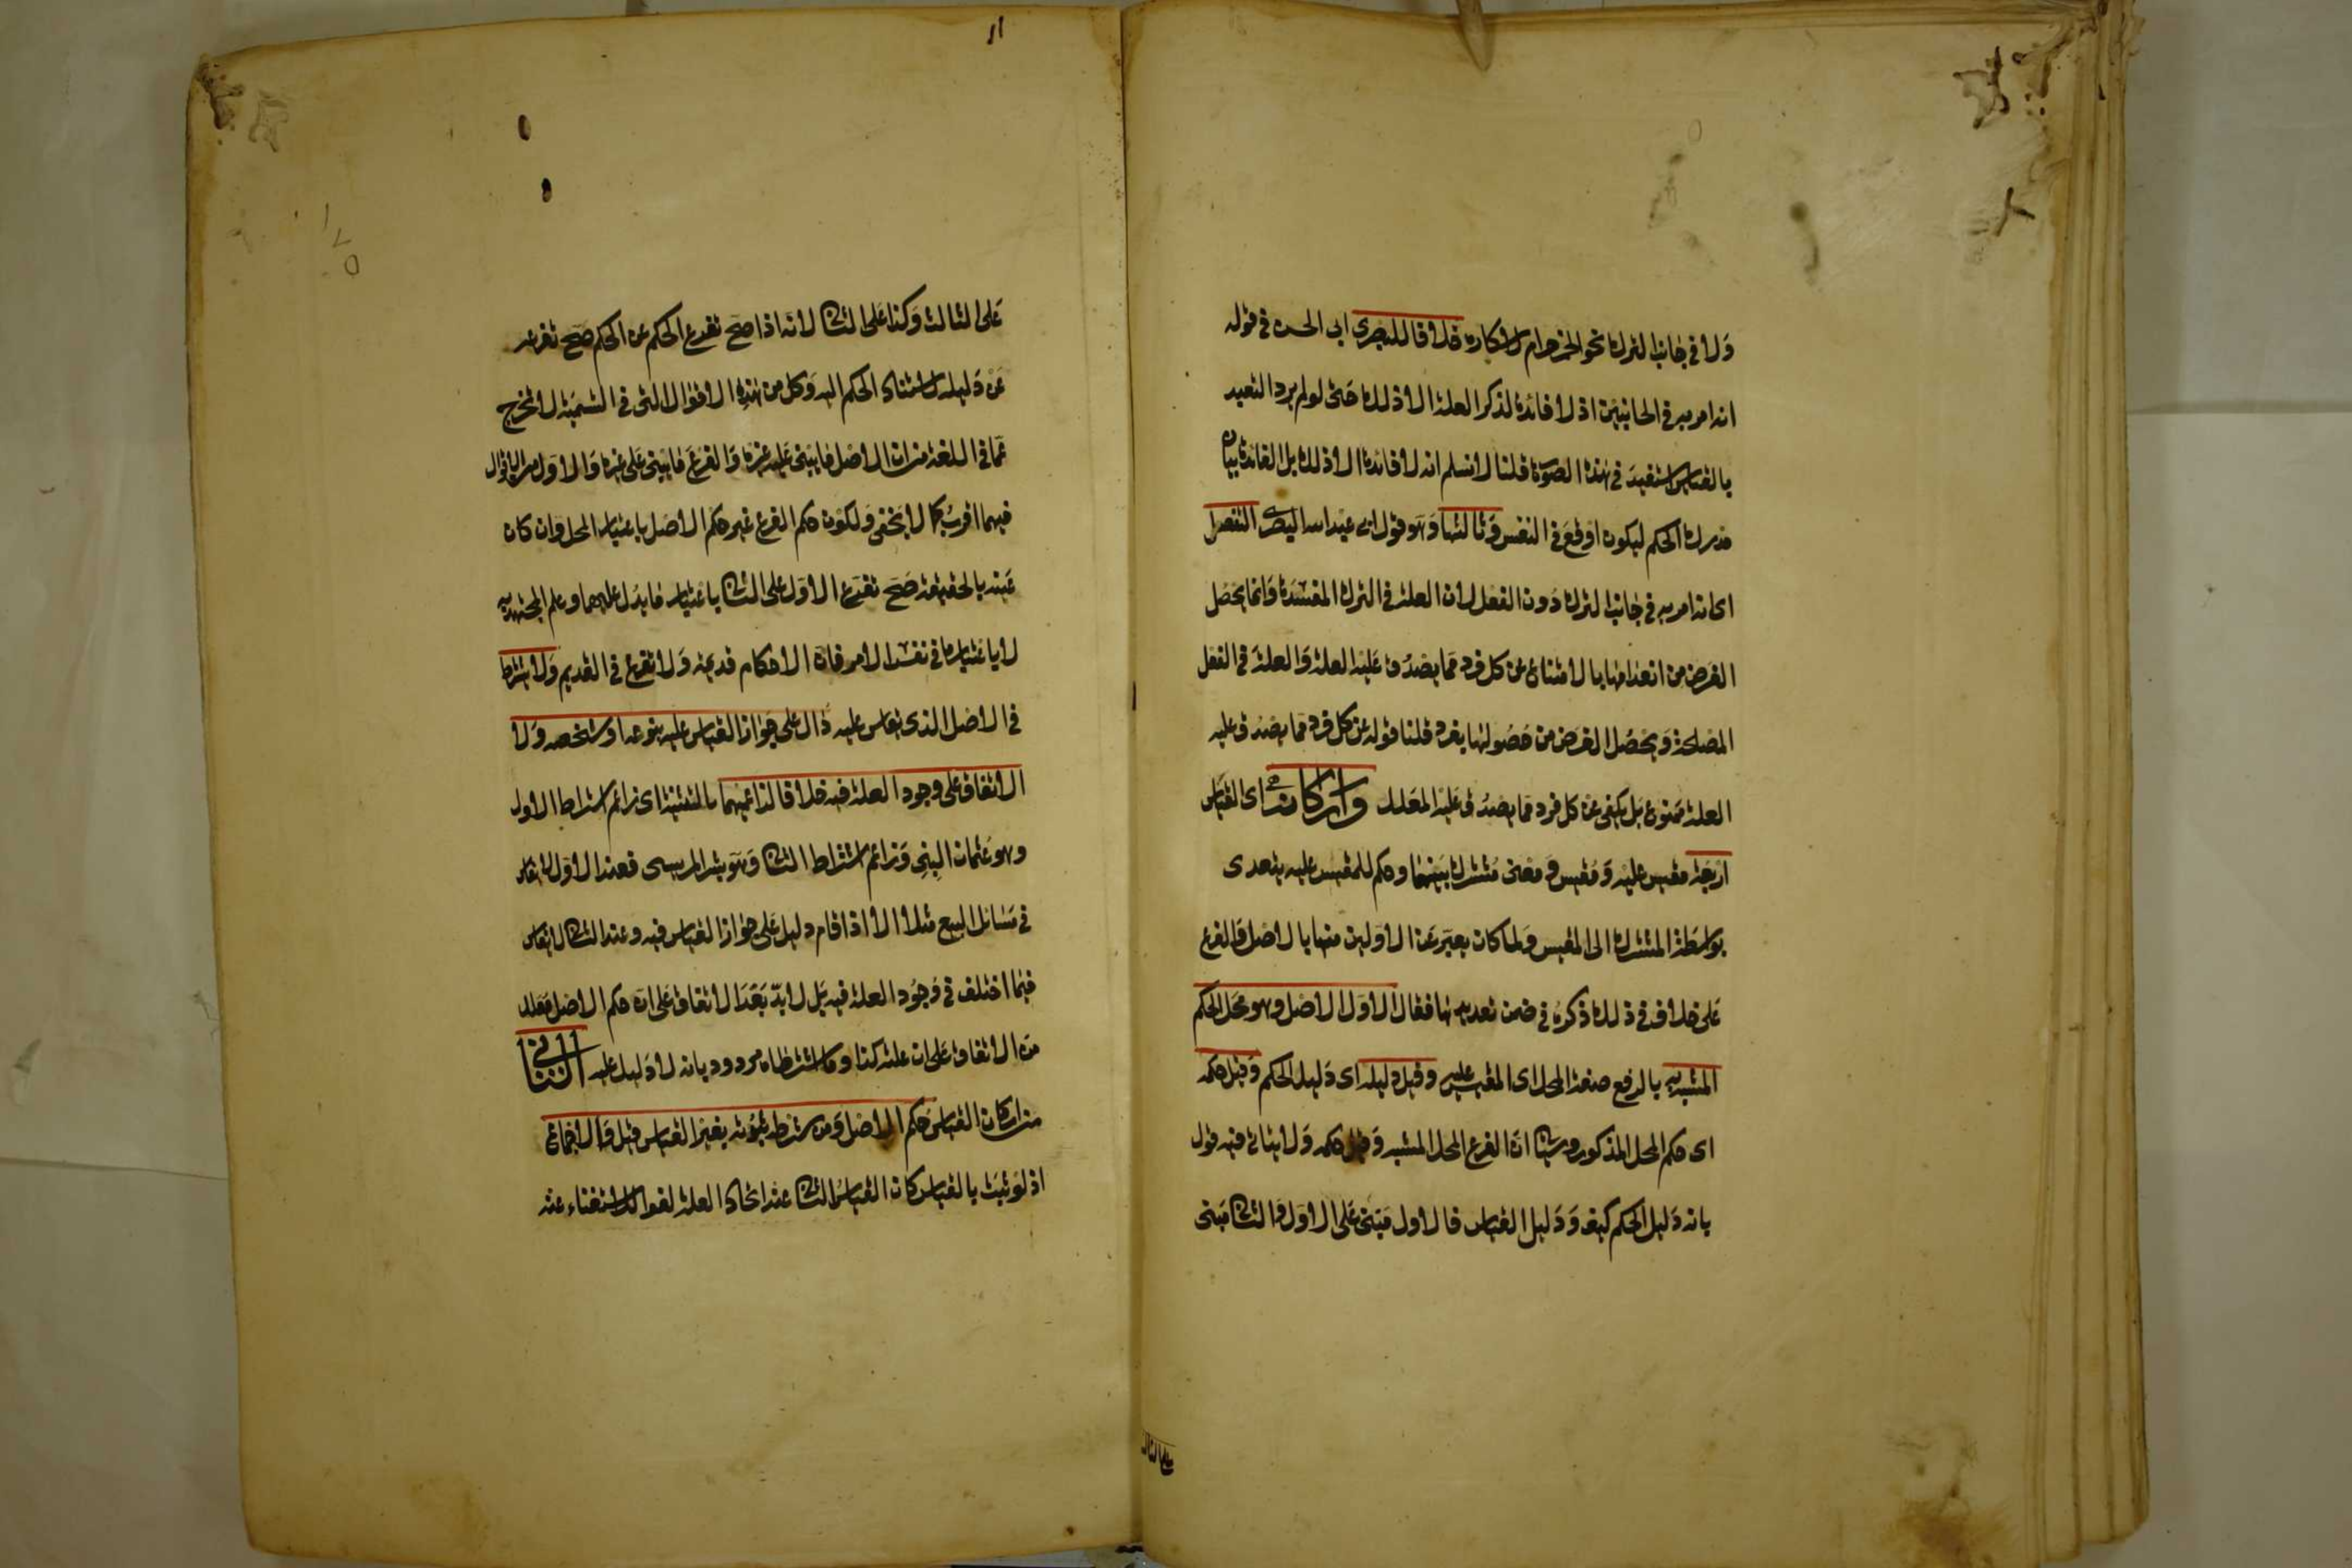 ولا في جانب الترك نحو الخمر حرام لاسكاره خلافا للبصرى ابى الحسن في قوله
انه امر به في الجانبين اذ لا فائدة لذكر العلة الا ذلك حتى لو لم يرد التعبد
بالقياس استفيد في هذه الصورة قلنا لا نسلم انه لا فائدة الا ذلك بل الفائدة بيان
مدرك الحكم ليكون اوقع في النفس وثالثها وهو قول ابى عبد الله البصرى التفصيل
اى انه امر به في جانب الترك دون الفعل لان العلة في الترك المفسدة وانما يحصل
الغرض من انعدامها بالامتناع عن كل فرد مما يصدق عليه العلة والعلة في الفعل
المصلحة ويحصل الغرض من حصولها بفرد قلنا قوله عن كل فرد مما يصدق عليه
العلة ممنوع بل يكفى عن كل فرد مما يصدق عليه المعلل واركانه اى القياس
اربعة مقيس عليه ومقيس ومعنى مشترك بينهما وحكم للمقيس عليه يتعدى
بواسطة المشترك الى المقيس ولما كان يعبر عن الاولين منها بالاصل والفرع
على خلاف في ذلك ذكره في ضمن تعديدها فقال الاول الاصل وهو محل الحكم
المشبه به بالرفع صفة المحل اى المقيس عليه وقيل دليله اى دليل الحكم وقيل حكمه
اى حكم المحل المذكور وسياتى ان الفرع المحل المشبه وقيل حكمه ولا يتاتى فيه قول
بانه دليل الحكم كيف ودليله القياس فالاول مبنى على الاول والثانى مبنى
على الثالث
اا
١٧٥
على الثالث وكذا على الثانى لانه اذا صح تفرع الحكم عن الحكم صح تفرعه
عن دليله لاستناد الحكم اليه وكل من هذه الاقوال التى في التسمية لا تخرج
عما في اللغة من ان الاصل ما يبنى عليه غيره والفرع ما يبنى على غيره والاول من الاقوال
فيهما اقرب كما لا يخفى ولكون حكم الفرع غير حكم الاصل باعتبار المحل وان كان
عينه بالحقيقة صح تفرع الاول على الثانى باعتبار ما يدل عليهما وعلم المجتهد به
لا باعتباره في نفسه الامر فان الاحكام قديمة ولا تفرع في القديم ولا يشترط
في الاصل الذى يقاس عليه دال على جواز القياس عليه بنوعه او شخصه ولا
الاتفاق على وجود العلة فيه خلافا لزاعميهما بالتثنية اى زاعم اشتراط الاول
وهو عثمان البتى وزاعم اشتراط الثانى وهو بشر المريسى فعند الاول لا يقاس
في مسائل البيع مثلا الا اذا قام دليل على جواز القياس فيه وعند الثانى لا يقاس
فيما اختلف في وجود العلة فيه بل لا بد بعد الاتفاق على ان حكم الاصل معلل
من الاتفاق على ان علته كذا وما اشترطاه مردود بانه لا دليل عليه الثانى
من اركان القياس حكم الاصل ومن شرطه ثبوته بغير القياس قيل والاجماع
اذ لو ثبت بالقياس كان القياس الثانى عند اتحاد العلة لغوا للاستغناء عنه